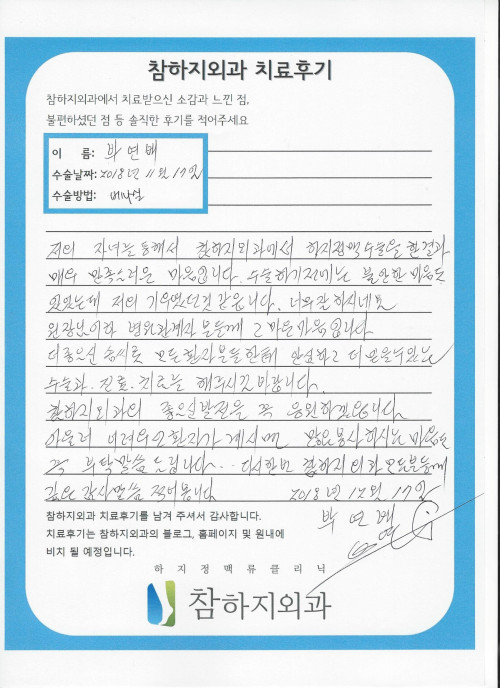 참하지외과 치료후기
참하지외과에서 치료받으신 소감과 느낀 점,
불편하셨던 점 등 솔직한 후기를 적어주세요
이 름: 박연배
수술날짜: 2018년 11월 17일
수술방법: 베나실
저의 자녀를 통해서 참하지외과에서 하지정맥수술을 한결과
매우 만족스러운 마음입니다. 수술하기전에는 불안한 마음도
있었는데 저의 기우였던것 같습니다. 너무잘하시네요
원장님이하 병원관계자 분들께 고마운마음입니다
더좋으신 솜씨로 모든환자분들한테 안심하고 더믿을수있는
수술과. 진료. 치료를 해주시기바랍니다.
참하지외과의 좋은발전을 꼭 응원하겠습니다
아울러 어려우신환자가 계시면 많은봉사하시는 마음도
꼭 부탁말씀 드립니다.. 다시한번 참하지외과모든분들께
깊은 감사말씀 적어봅니다 2018년 12월 17일
참하지외과 치료후기를 남겨 주셔서 감사합니다. 박연배
치료후기는 참하지외과의 블로그, 홈페이지 및 원내에
비치 될 예정입니다.
하지정맥류클리닉
참하지외과